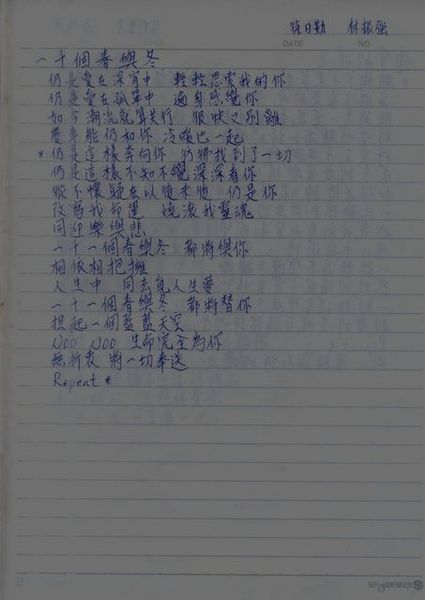 徐日勤 林振強
DATE NO.
一千個春與冬
仍是愛在深宵中 輕輕思索我的你
仍是愛在孤單中 遍身感覺你
如今潮流就算共行 很快又別離
幾年能仍和你 冷暖也一起
*仍是這樣奔向你 彷彿找到了一切
仍是這樣不知不覺深深看你
從不懷疑在以後未後 仍是你
改寫我命運 燒滾我靈魂
同迎樂與悲
一千一個春與冬 都將與你
相依相抱擁
人生中 同去覓人生夢
一千一個春與冬 都將替你
担起一個藍藍天空
NOO NOO 生命完全為你
無折衷 將一切奉送
Repeat *